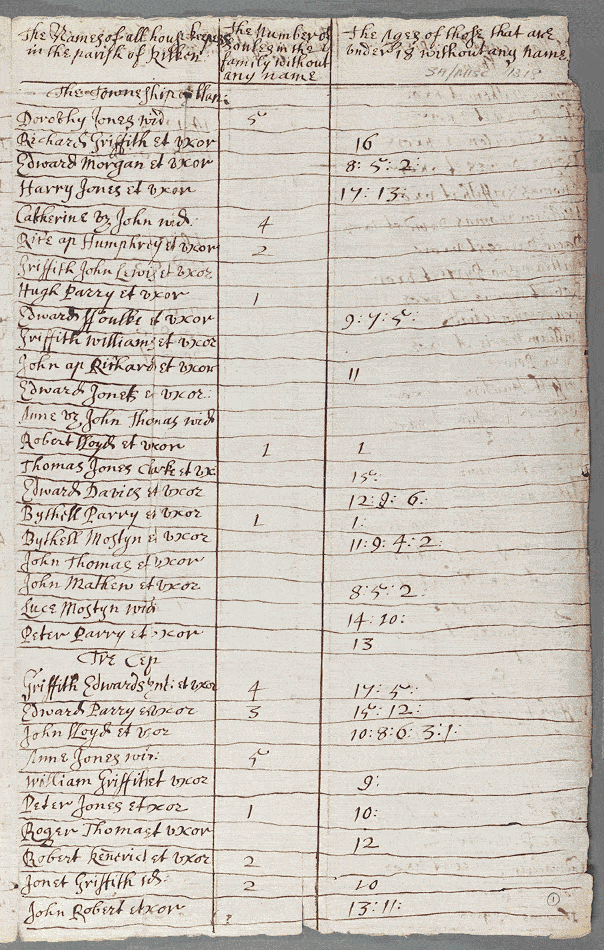 The Names of all housekeepers in the parish of Kilken
The Number of soules in the family without any name
The Ages of those that are under 18 without any name
SA/MISC/1318
The Towneship Llan:
Dorothy Jones wid 5
Richard Griffith et uxor 16
Edward Morgan et uxor 8: 5: 2:
Harry Jones et uxor 17: 13:
Catherine vz John wid: 4
Rice ap Humphrey et uxor 2
Griffith John Lewis et uxor
Hugh Parry et uxor 1
Edward ffoulke et uxor 9: 7: 5:
Griffith Williams et uxor
John ap Richard et uxor 11
Edward Jones et uxor:
Anne vz John Thomas wid
Robert Lloyd et uxor 1 1
Thomas Jones Clarke et ux 15:
Edward Davies et uxor 12: 9: 6:
Bythell Parry et uxor 1 1:
Bythell Mostyn et uxor 11: 9: 4: 2:
John Thomas et uxor
John Mathew et uxor 8: 5: 2:
Luce Mostyn wid 14: 10:
Peter Parry et uxor 13
Tre Cep
Griffith Edwards gnt: et uxor 4 17: 5:
Edward Parry et uxor 3 15: 12:
John Lloyd et uxor 10: 8: 6: 3: 1:
Anne Jones wid: 5
William Griffith et uxor 9:
Peter Jones et uxor 1 10:
Roger Thomas et uxor 12
Robert Kenrick et uxor 2
Jonet Griffith 2 10
John Robert et uxor 13: 11:
1